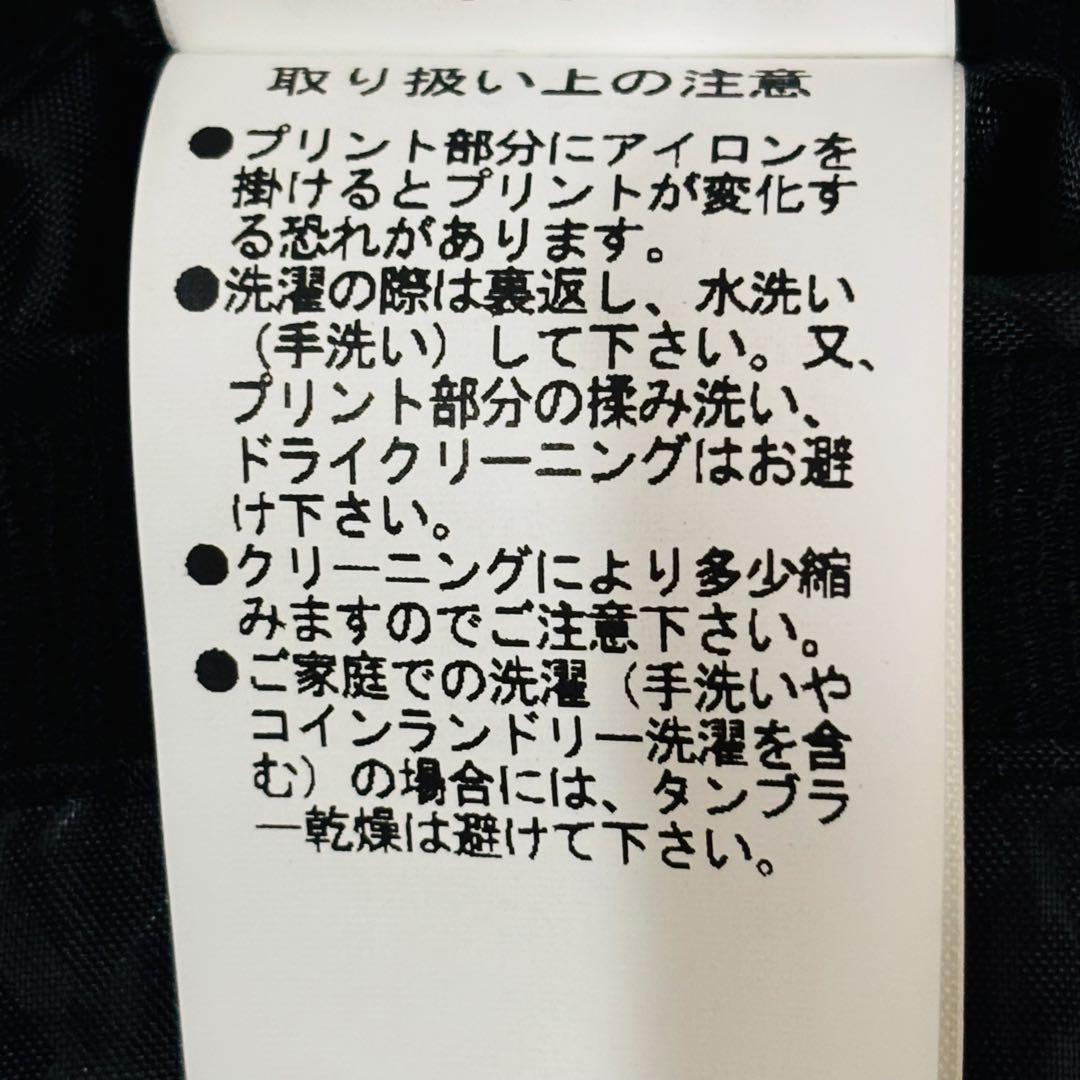 取り扱い上の注意
●プリント部分にアイロンを
掛けるとプリントが変化す
る恐れがあります。
●洗濯の際は裏返し、水洗い
（手洗い）して下さい。又、
プリント部分の揉み洗い、
ドライクリーニングはお避
け下さい。
●クリーニングにより多少縮
みますのでご注意下さい。
●ご家庭での洗濯（手洗いや
コインランドリー洗濯を含
む）の場合には、タンブラ
ー乾燥は避けて下さい。